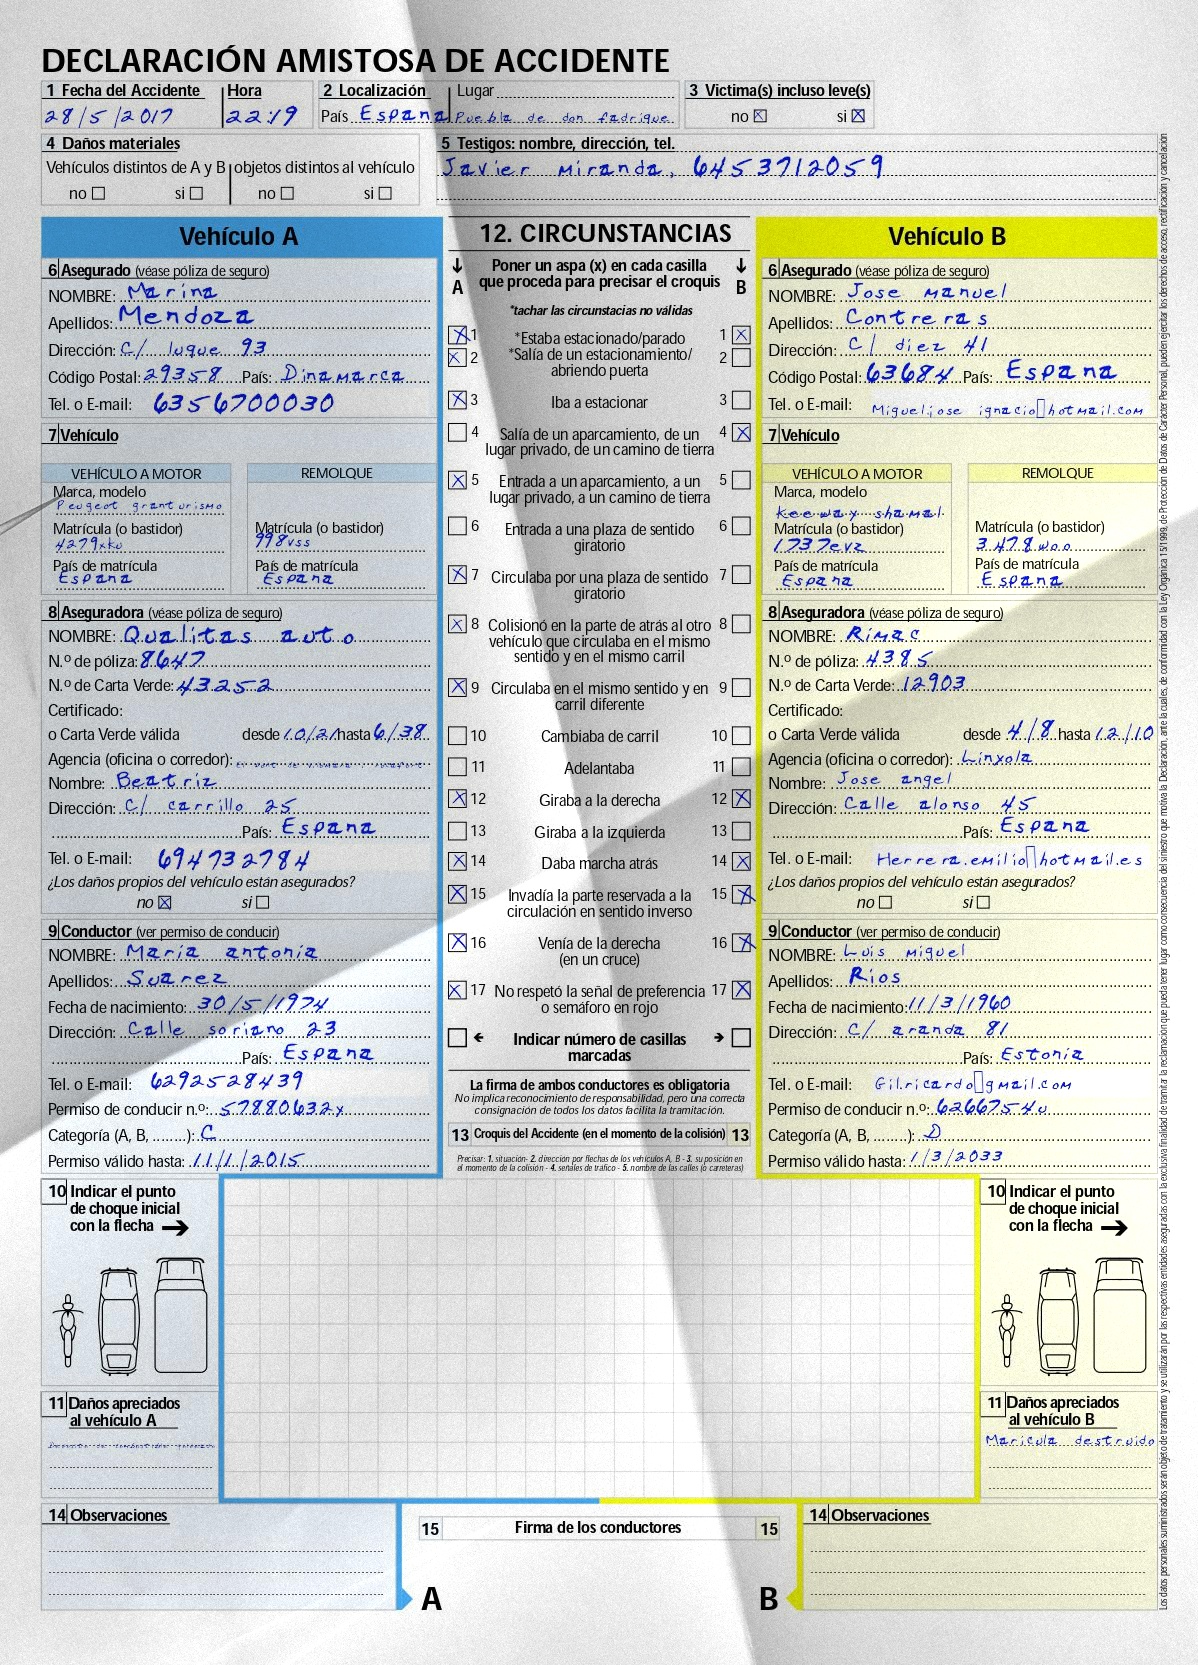 DECLARACIÓN AMISTOSA DE ACCIDENTE
1 Fecha del Accidente Hora
28/5/2017 22:19
2 Localización Lugar
País Espana Puebla de don fadrique
3 Victima(s) incluso leve(s)
no ☒ si ☒
4 Daños materiales
Vehículos distintos de A y B objetos distintos al vehículo
no ☐ si ☐ no ☐ si ☐
5 Testigos: nombre, dirección, tel.
Javier Miranda, 6453712059
Vehículo A
6 Asegurado (véase póliza de seguro)
NOMBRE: Marina
Apellidos: Mendoza
Dirección: C/ luque 93
Código Postal: 29358 País: Dinamarca
Tel. o E-mail: 6356700030
7 Vehículo
VEHÍCULO A MOTOR REMOLQUE
Marca, modelo
Peugeot granturismo
Matrícula (o bastidor) Matrícula (o bastidor)
4279xku 998vss
País de matrícula País de matrícula
Espana Espana
8 Aseguradora (véase póliza de seguro)
NOMBRE: Qualitas auto
N.º de póliza: 8647
N.º de Carta Verde: 43252
Certificado:
o Carta Verde válida desde 10/21 hasta 6/38
Agencia (oficina o corredor):
Nombre: Beatriz
Dirección: C/ carrillo 25
País: Espana
Tel. o E-mail: 694732784
¿Los daños propios del vehículo están asegurados?
no ☒ si ☐
9 Conductor (ver permiso de conducir)
NOMBRE: María antonia
Apellidos: Suarez
Fecha de nacimiento: 30/5/1974
Dirección: Calle soriano 23
País: Espana
Tel. o E-mail: 6292528439
Permiso de conducir n.º: 57880632x
Categoría (A, B, ........): C
Permiso válido hasta: 11/1/2015
12. CIRCUNSTANCIAS
A Poner un aspa (x) en cada casilla que proceda para precisar el croquis B
*tachar las circunstacias no válidas
☒ 1 *Estaba estacionado/parado 1 ☒
☒ 2 *Salía de un estacionamiento/ abriendo puerta 2 ☐
☒ 3 Iba a estacionar 3 ☐
☐ 4 Salía de un aparcamiento, de un lugar privado, de un camino de tierra 4 ☒
☒ 5 Entrada a un aparcamiento, a un lugar privado, a un camino de tierra 5 ☐
☐ 6 Entrada a una plaza de sentido giratorio 6 ☐
☒ 7 Circulaba por una plaza de sentido giratorio 7 ☐
☒ 8 Colisionó en la parte de atrás al otro vehículo que circulaba en el mismo sentido y en el mismo carril 8 ☐
☒ 9 Circulaba en el mismo sentido y en carril diferente 9 ☐
☐ 10 Cambiaba de carril 10 ☐
☐ 11 Adelantaba 11 ☐
☒ 12 Giraba a la derecha 12 ☒
☐ 13 Giraba a la izquierda 13 ☐
☒ 14 Daba marcha atrás 14 ☒
☒ 15 Invadía la parte reservada a la circulación en sentido inverso 15 ☒
☒ 16 Venía de la derecha (en un cruce) 16 ☒
☒ 17 No respetó la señal de preferencia o semáforo en rojo 17 ☒
☐ ← Indicar número de casillas marcadas → ☐
La firma de ambos conductores es obligatoria
No implica reconocimiento de responsabilidad, pero una correcta
consignación de todos los datos facilita la tramitación.
13 Croquis del Accidente (en el momento de la colisión) 13
Precisar: 1. situación- 2. dirección por flechas de los vehículos A, B - 3. su posición en
el momento de la colisión - 4. señales de tráfico - 5. nombre de las calles (o carreteras)
Vehículo B
6 Asegurado (véase póliza de seguro)
NOMBRE: Jose manuel
Apellidos: Contreras
Dirección: C/ diez 41
Código Postal: 63684 País: Espana
Tel. o E-mail: Migueljose ignacio▯hotmail.com
7 Vehículo
VEHÍCULO A MOTOR REMOLQUE
Marca, modelo
keeway shamal
Matrícula (o bastidor) Matrícula (o bastidor)
1737evz 3478woo
País de matrícula País de matrícula
Espana Espana
8 Aseguradora (véase póliza de seguro)
NOMBRE: Rimac
N.º de póliza: 4385
N.º de Carta Verde: 12903
Certificado:
o Carta Verde válida desde 4/8 hasta 12/10
Agencia (oficina o corredor): Linxola
Nombre: Jose angel
Dirección: Calle alonso 45
País: Espana
Tel. o E-mail: Herrera.emilio▯hotmail.es
¿Los daños propios del vehículo están asegurados?
no ☐ si ☐
9 Conductor (ver permiso de conducir)
NOMBRE: Luis miguel
Apellidos: Ríos
Fecha de nacimiento: 11/3/1960
Dirección: C/ aranda 81
País: Estonia
Tel. o E-mail: Gilricardo▯gmail.com
Permiso de conducir n.º: 62667540
Categoría (A, B, ........): D
Permiso válido hasta: 1/3/2033
10 Indicar el punto
de choque inicial
con la flecha →
11 Daños apreciados
al vehículo A
10 Indicar el punto
de choque inicial
con la flecha →
11 Daños apreciados
al vehículo B
Maricula destruido
14 Observaciones
15 Firma de los conductores 15
A B
14 Observaciones